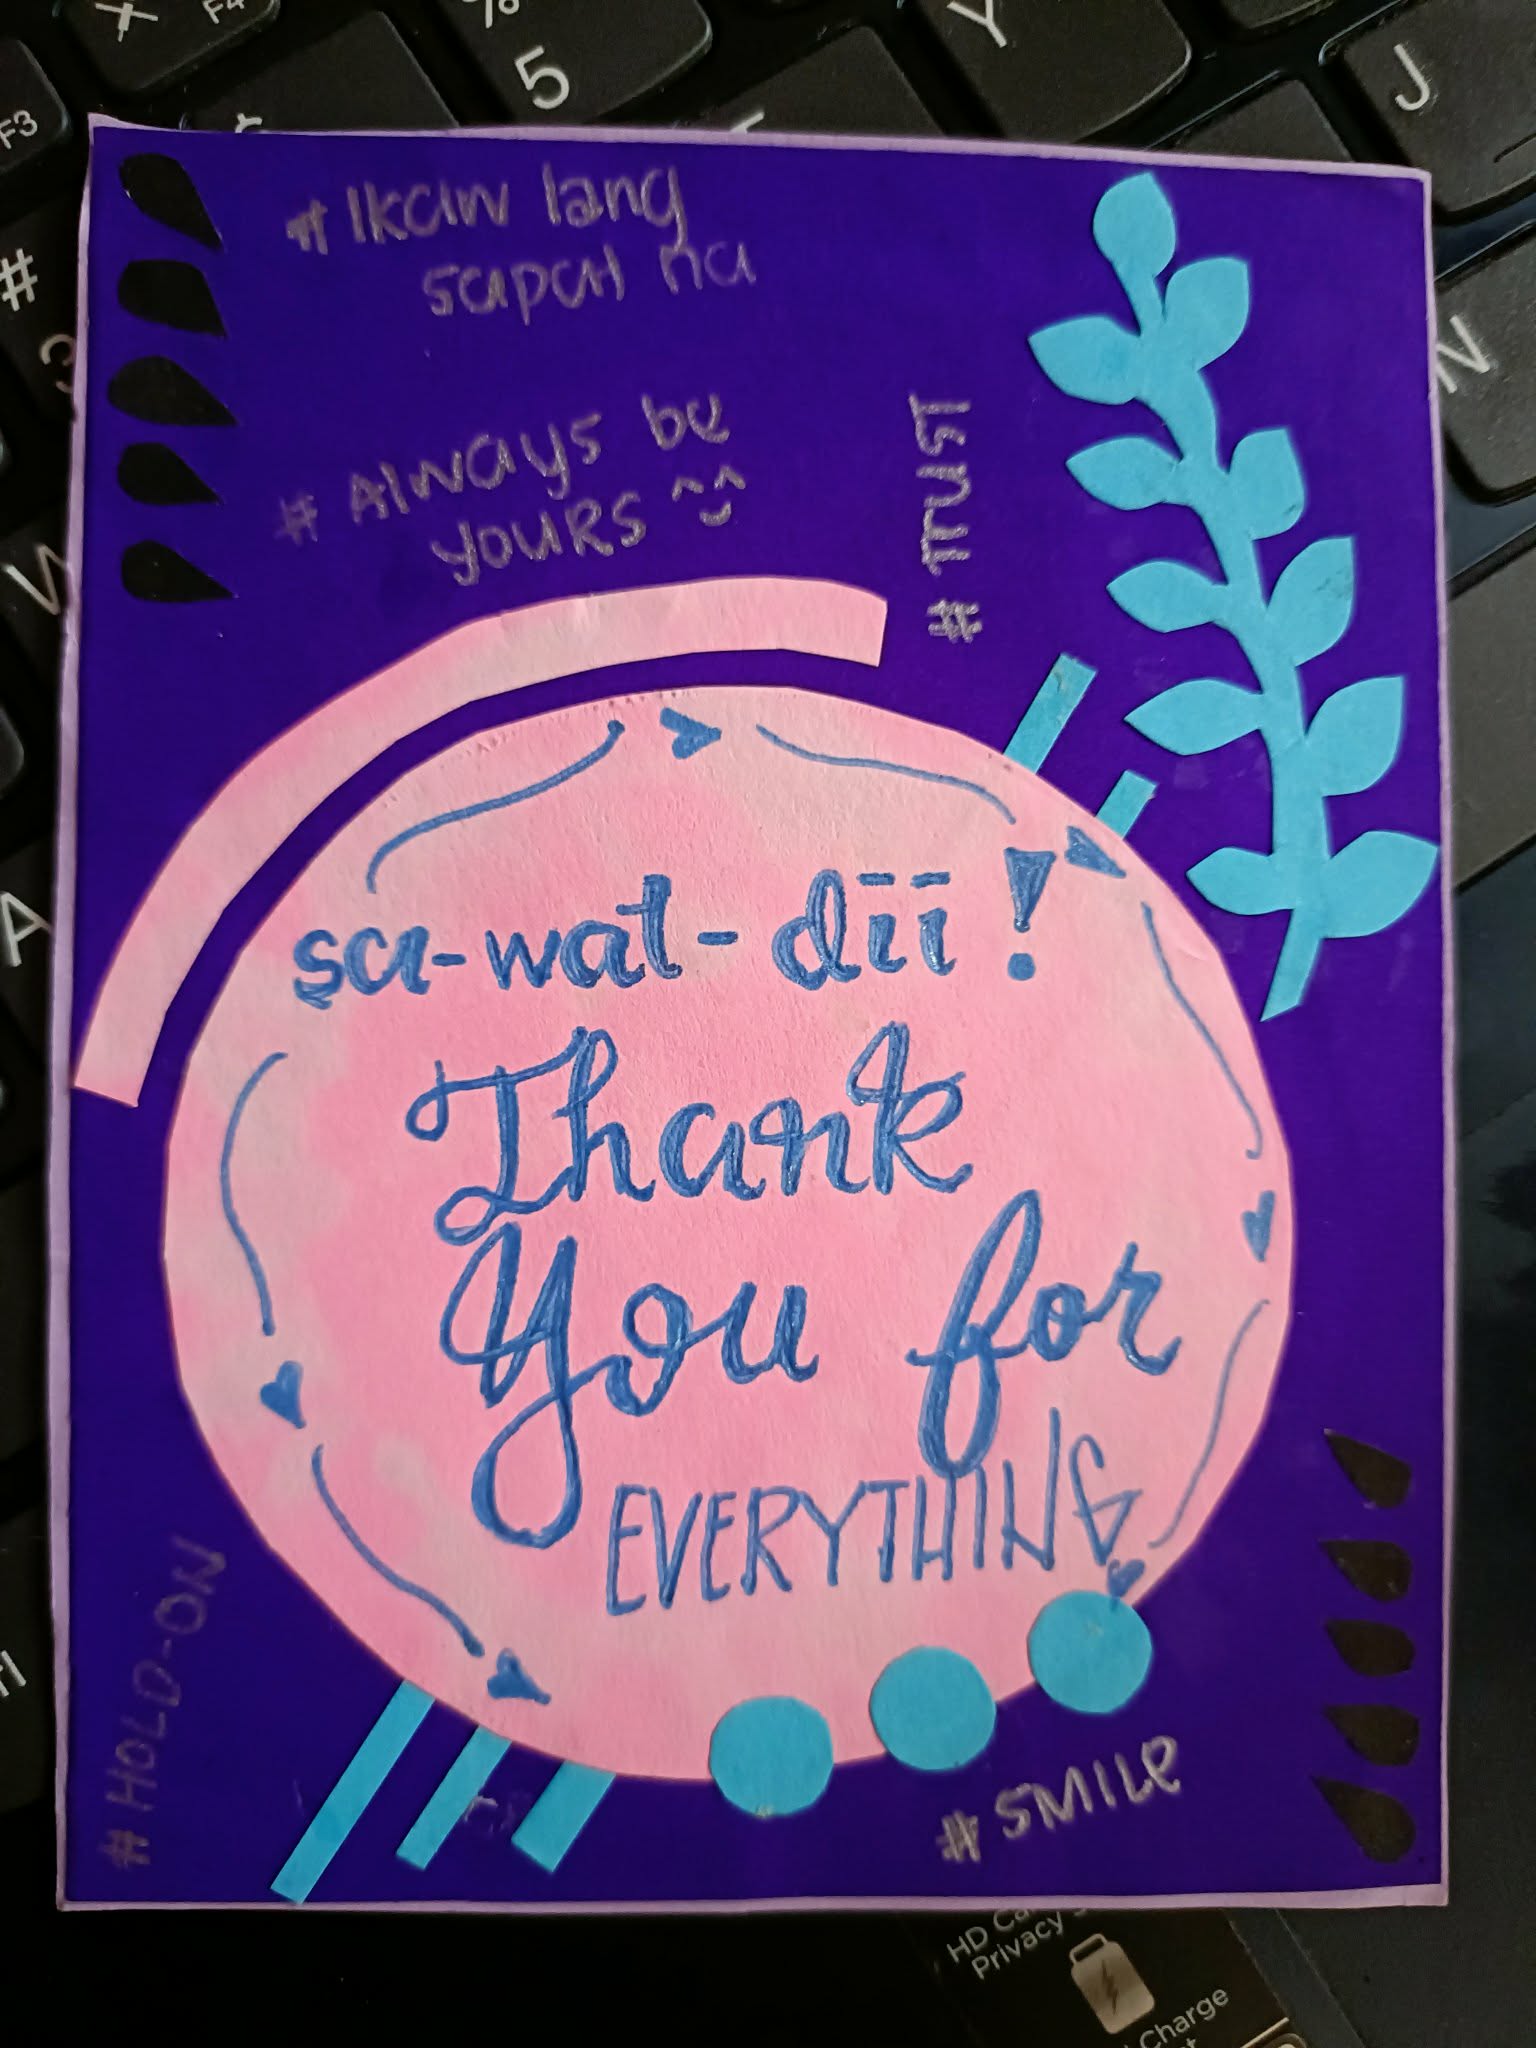 X
F4
%
5
Y
J
F3
#
3
N
W
A
# Ikaw lang
sapat na
# Always be
yours ^^
# TRUST
sa-wat-dii !
Thank
You for
EVERYTHING
# HOLD-ON
# SMILE
HD
Privacy
Charge